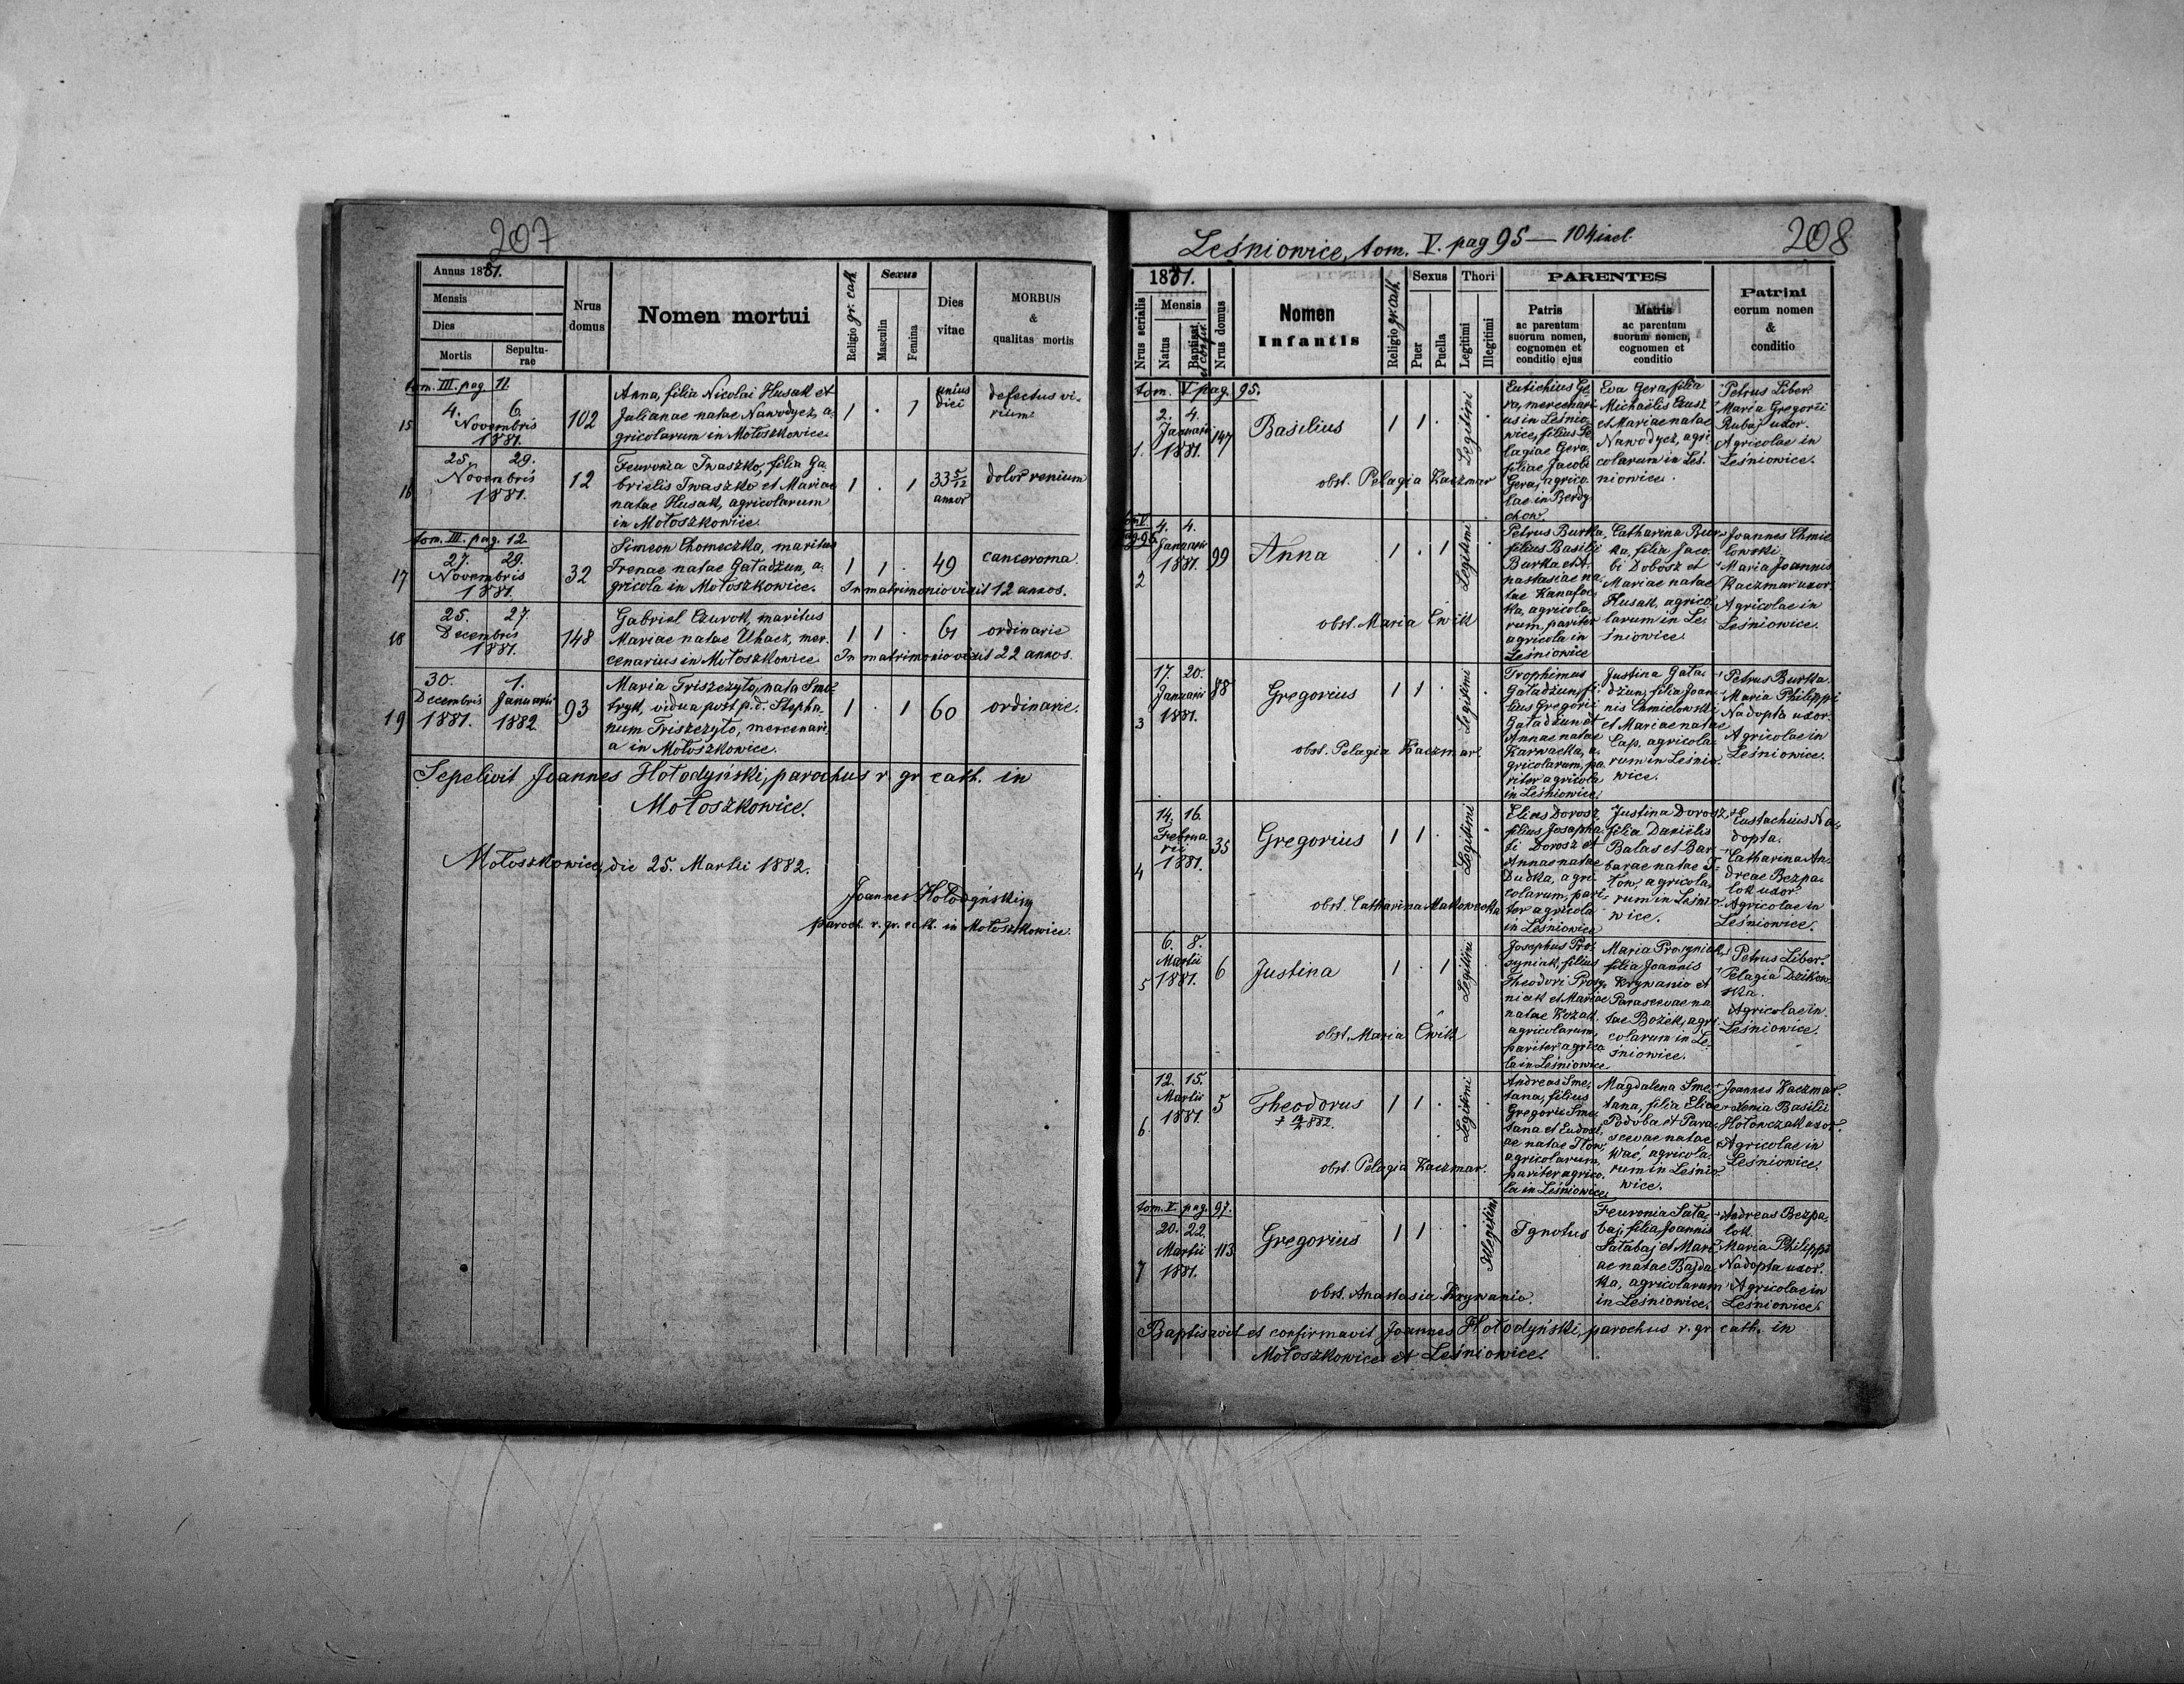 207
Annus 1881.
Mensis
Dies
Mortis
Sepulturae
Nrus domus
Nomen mortui
Religio gr. cath.
Sexus
Masculin
Femina
Dies vitae
MORBUS & qualitas mortis
tom. III. pag. 11.
15
4. 6.
Novembris
1881.
102
Anna, filia Nicolai Husak et
Julianae natae Nawodycz, a-
gricolarum in Mołoszkowice.
1 . 1
unius
diei
defectus vi-
rium
16
25. 29.
Novembris
1881.
12
Feuronia Iwaszko, filia Ga-
brielis Iwaszko et Mariae
natae Husak, agricolarum
in Mołoszkowice.
1 . 1
33 5/12
annor
dolor renium
tom. III. pag. 12
17
27. 29.
Novembris
1881.
32
Simeon Chomeczka, maritus
Irenae natae Gaładżun, a-
gricola in Mołoszkowice.
1 1 .
49
canceroma
In matrimonio vixit 12 annos.
18
25. 27.
Decembris
1881.
148
Gabriel Czurok, maritus
Mariae natae Uhacz, mer-
cenarius in Mołoszkowice.
1 1 .
61
ordinarie
In matrimonio vixit 22 annos.
19
30. 1.
Decembris Januarii
1881. 1882
93
Maria Triszczyło, nata Smo-
tryk, vidua post p. d. Stepha-
num Triszczyło, mercenari-
a in Mołoszkowice.
1 . 1
60
ordinarie.
Sepelivit Joannes Hołodyński, parochus r. gr. cath. in
Mołoszkowice.
Mołoszkowice, die 25. Martii 1882.
Joannes Hołodyński
paroch. r. gr. cath. in Mołoszkowice.
208
Leśniowice, tom. V. pag 95 — 104 incl.
1881.
Nrus serialis
Mensis
Natus
Baptisat. et confir.
Nrus domus
Nomen
Infantis
Religio gr. cath.
Sexus
Puer
Puella
Thori
Legitimi
Illegitimi
PARENTES
Patris
ac parentum
suorum nomen,
cognomen et
conditio ejus
Matris
ac parentum
suorum nomen,
cognomen et
conditio
Patrini
eorum nomen
&
conditio
tom. V pag. 95.
1.
2. 4.
Januarii
1881.
147
Basilius
1 1 .
Legitimi
obst. Pelagia Kaczmar
Eutichius Ge-
ra, mercenari-
us in Leśnio-
wice, filius Pe-
lagiae Gera,
filiae Jacobi
Gera, agrico-
lae in Berdy-
chow.
Eva Gera, filia
Michaëlis Czusz
et Mariae natae
Nawodycz, agri-
colarum in Leś-
niowice.
Petrus Liber
Maria Gregorii
Rubaj uxor.
Agricolae in
Leśniowice.
tom V.
pag. 96.
2
4. 4.
Januarii
1881.
99
Anna
1 . 1
Legitimi
obst. Maria Cwik
Petrus Burka,
filius Basilii
Burka et A-
nastasiae na-
tae Kanafoc-
ka, agricola-
rum, pariter
agricola in
Leśniowice
Catharina Bur-
ka, filia Jaco-
bi Dobosz et
Mariae natae
Husak, agrico-
larum in Le-
śniowice.
Joannes Chmie-
lowski.
Maria Joannis
Kaczmar uxor.
Agricolae in
Leśniowice.
3
17. 20.
Januarii
1881.
88
Gregorius
1 1 .
Legitimi
obst. Pelagia Kaczmar.
Trophimus
Gaładżun, fi-
lius Gregorii
Gaładżun et
Annae natae
Karwacka, a-
gricolarum, pa-
riter agricola
in Leśniowice.
Justina Gała-
dżun, filia Joan-
nis Chmielowski
et Mariae natae
Cap, agricola-
rum in Leśnio-
wice.
Petrus Burka.
Maria Philippi
Nadopta uxor.
Agricolae in
Leśniowice.
4
14. 16.
Februa-
rii
1881.
35
Gregorius
1 1 .
Legitimi
obst. Catharina Makowecka
Elias Dorosz,
filius Josapha-
ti Dorosz et
Annae natae
Dudka, agri-
colarum, pari-
ter agricola
in Leśniowice
Justina Dorosz,
filia Daniëlis
Balas et Bar-
barae natae I-
łow, agricola-
rum in Leśnio-
wice.
Eustachius Na-
dopta.
Catharina An-
dreae Bezpa-
lok uxor.
Agricolae in
Leśniowice.
5
6. 8.
Martii
1881.
6
Justina
1 . 1
Legitimi
obst. Maria Cwik
Josephus Pro-
zyniak, filius
Theodori Prozy-
niak et Mariae
natae Kozak,
agricolarum,
pariter agrico-
la in Leśniowice
Maria Prozyniak,
filia Joannis
Krywanio et
Parascevae na-
tae Bożek, agri-
colarum in Le-
śniowice.
Petrus Liber.
Pelagia Dzikow-
ska.
Agricolae in
Leśniowice.
6.
12. 15.
Martii
1881.
5
Theodorus
1 1 .
Legitimi
obst. Pelagia Kaczmar.
Andreas Sme-
tana, filius
Gregorii Sme-
tana et Eudoxi-
ae natae Iłow,
agricolarum,
pariter agrico-
la in Leśniowice.
Magdalena Sme-
tana, filia Eliae
Podoba et Para-
scevae natae
Wać, agricola-
rum in Leśnio-
wice.
Joannes Kaczmar.
Xenia Basilii
Hołowczak uxor.
Agricolae in
Leśniowice.
tom. V. pag. 97.
7
20. 22.
Martii
1881.
113
Gregorius
1 1 .
Illegitimi
obst. Anastasia Krywanio.
Ignotus
Feuronia Sała-
baj, filia Joannis
Sałabaj et Mari-
ae natae Bajda-
ka, agricolarum
in Leśniowice.
Andreas Bezpa-
lok.
Maria Philippi
Nadopta uxor.
Agricolae in
Leśniowice.
Baptisavit et confirmavit Joannes Hołodyński, parochus r. gr. cath. in
Mołoszkowice et Leśniowice.